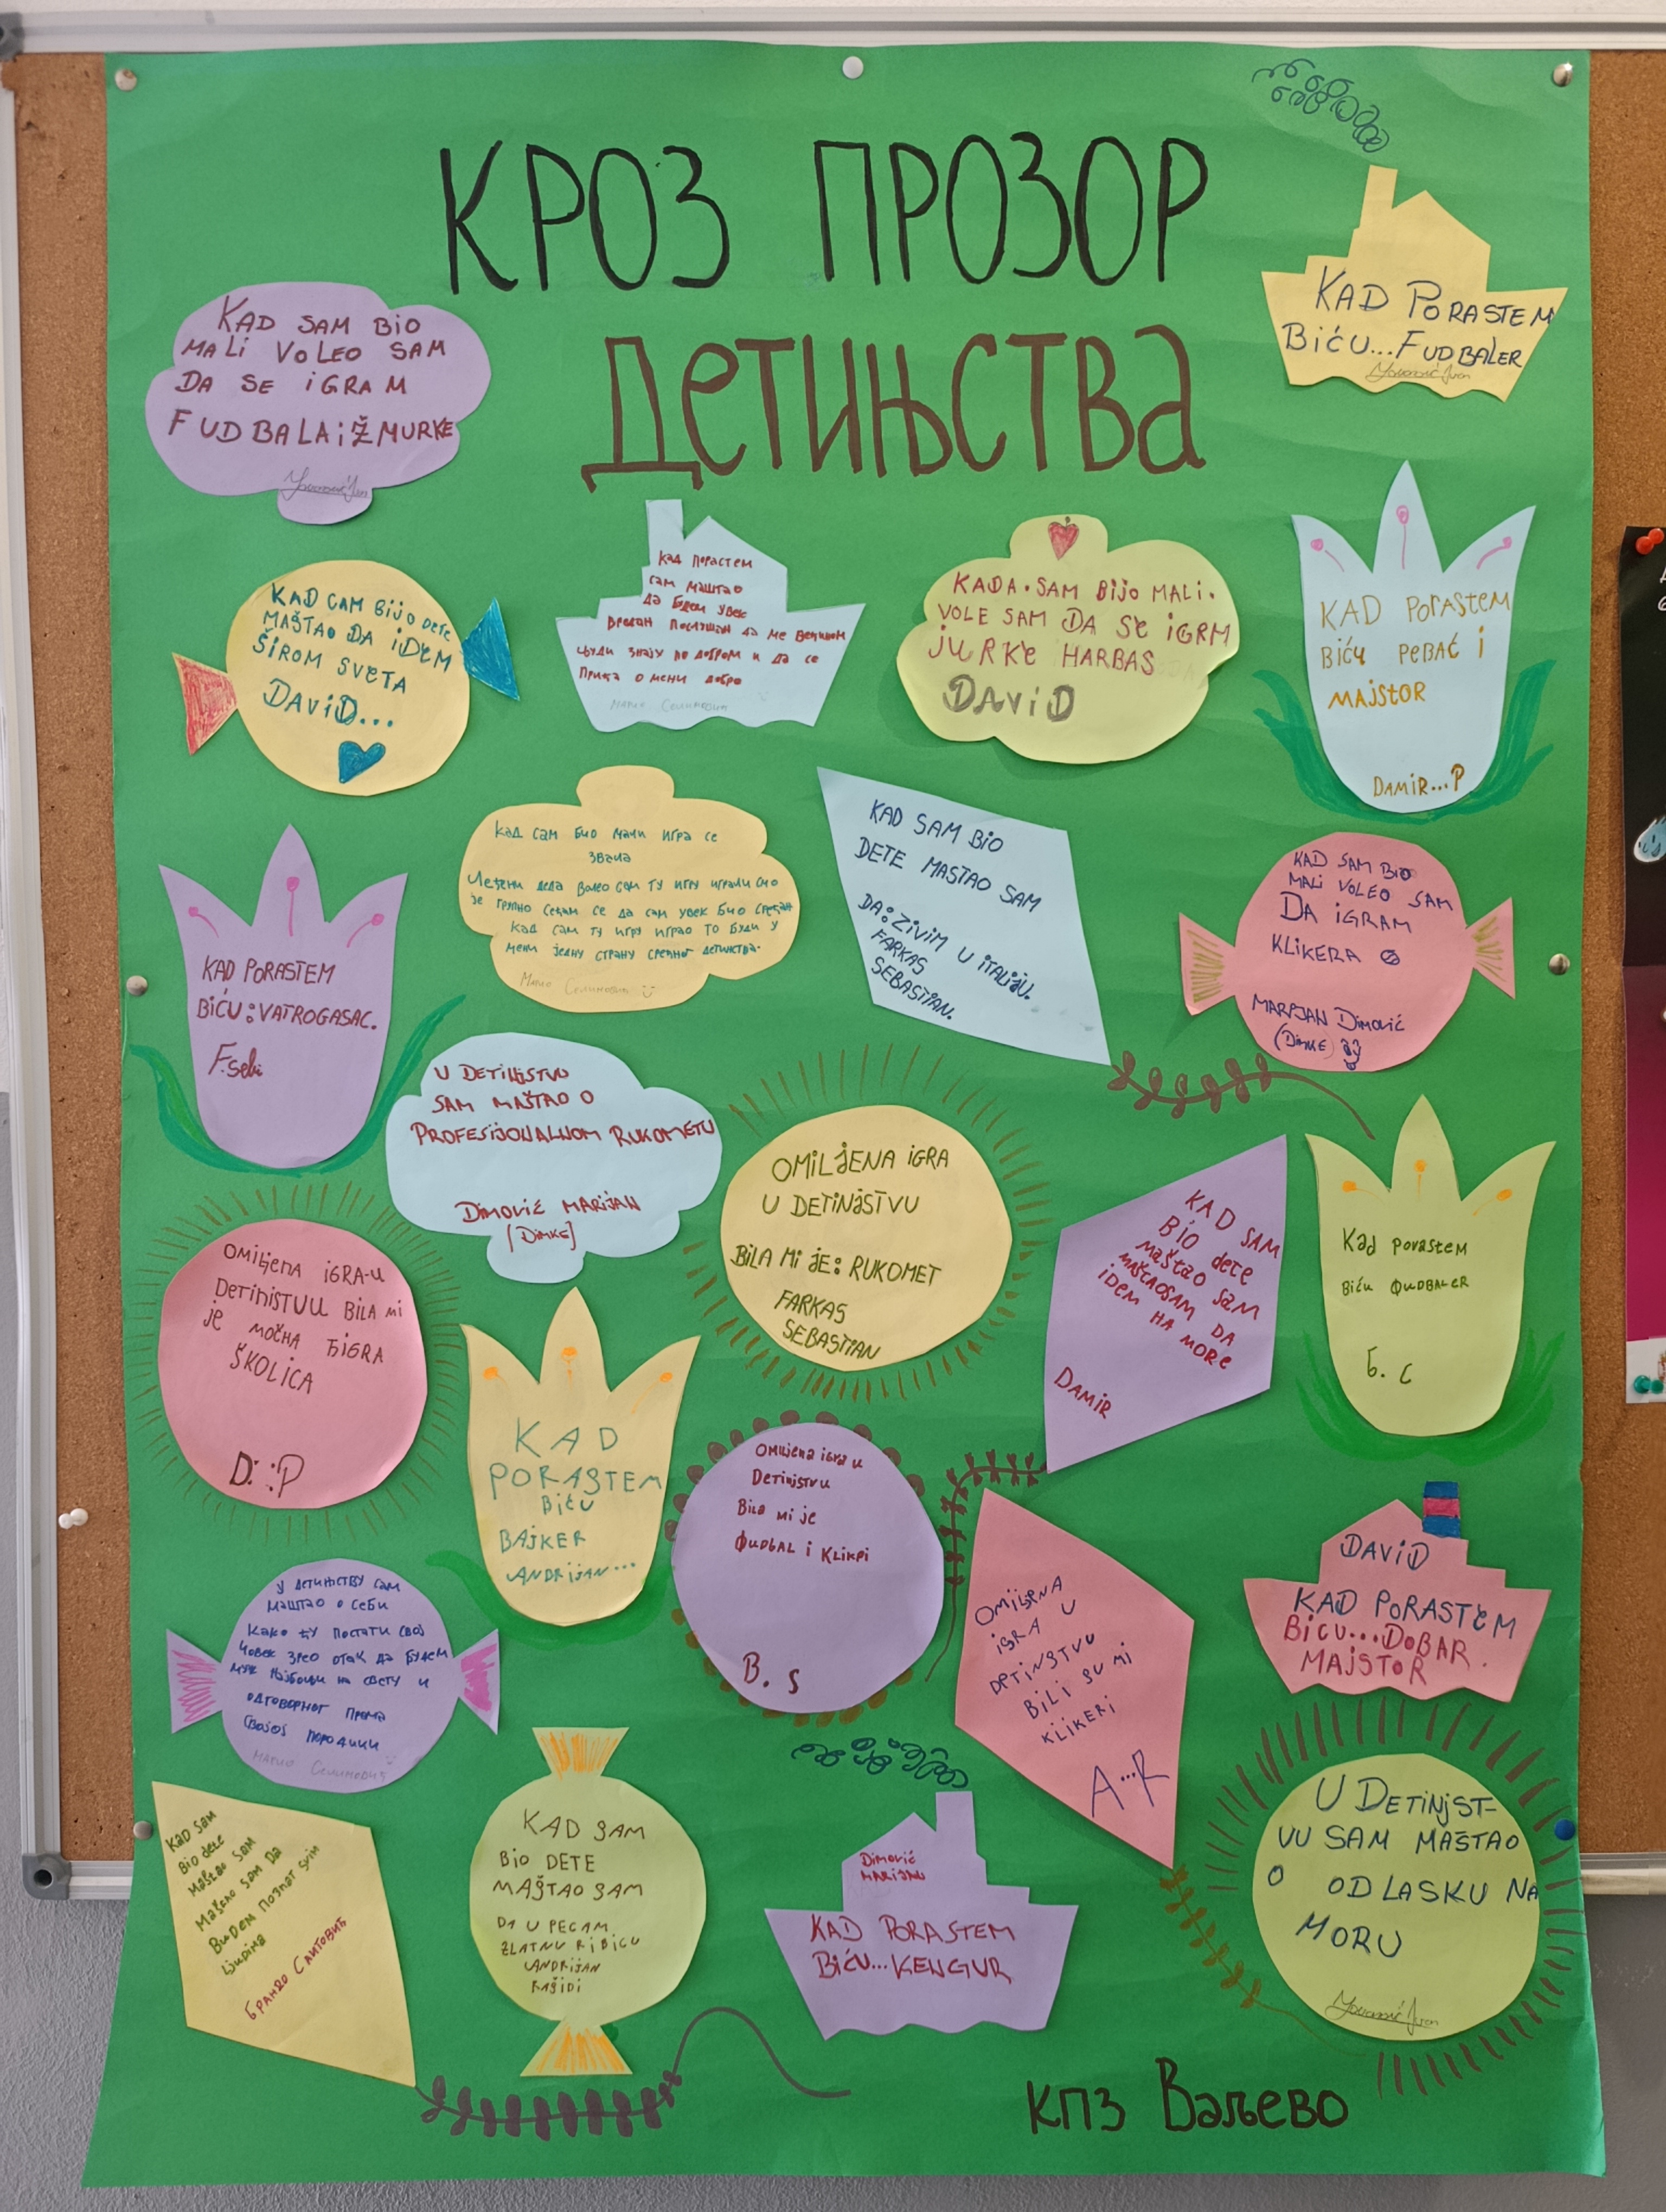 КРОЗ ПРОЗОР
ДЕТИЊСТВА
KAD SAM BiO
MALi VOLEO SAM
DA SE iGRAM
FUDBALA i ŽMURKE
KAD PORASTEM
BiĆU...FUDBALER
KAD CAM BiJO DETE
MAŠTAO DA iDEM
ŠIROM SVETA
DAViD...
Кад порастем
сам маштао
да будем увек
вредан послушан да ме
људи знају по добром и да се
прича о мени добро
Марио Селимовић
KADA.SAM BiJO MALi.
VOLE SAM DA SE iGRM
JURKE HARBAS
DAViD
KAD PORASTEM
BiĆu PEBAĆ i
MAJSTOR
DAMiR...P
Кад сам био мали игра се
звала
Летени деда волео сам ту игру играли смо
је групно сећам се да сам увек био срећан
кад сам ту игру играо то буди у
мени једну страну срећног детинства.
Марио Селимовић
KAD SAM BiO
DETE MASTAO SAM
DA:ZIVIM U iTALiJU.
FARKAS
SEBASTIAN.
KAD SAM BiO
MALi VOLEO SAM
DA iGRAM
KLIKERA
MARIJAN DIMOVIĆ
(DIMKE)
KAD PORASTEM
BiĆU:VATROGASAC.
F.sebi
U DETINJSTVU
SAM MAŠTAO O
PROFESIJONALNOM RUKOMETU
DIMOVIĆ MARIJAN
[DIMKE]
OMILJENA iGRA
U DETINJSTVU
BILA Mi JE: RUKOMET
FARKAS
SEBASTIAN
KAD SAM
BIO dete
maštao sam
MAŠTAOSAM DA
iDEM HA MORE
DAMiR
Kad porastem
Biću ФUDBALER
Б. С
OMILJENA iGRA-U
DETINJSTVU BILA Mi
je MOĆNA ЂIGRA
ŠKOLICA
D: :P
KAD
PORASTEM
BiĆU
BAJKER
ANDRIJAN...
OMILJENA igra u
Detinjstvu
Bila mi je
ФUDBAL i KLIKRI
B. S
OMILJENA
iGRA U
DETINJSTVU
BiLi SU Mi
KLIKERi
A...R
DAVID
KAD PORASTEM
BiCU...DOBAR
MAJSTOR.
У детињству сам
маштао о себи
Како ћу постати свој
човек зрео отак да будем
муж најбољи на свету и
одговорног према
својој породици
Марио Селимовић
Kad sam
Bio dete
Maštao sam
Maštao sam Da
Budem познат svim
ljudima
Брандо Саитовић
KAD SAM
BiO DETE
MAŠTAO SAM
DA UPECAM
ZLATNU RIBICU
ANDRIJAN
RAŠIDI
DIMOVIĆ
MARIJAN
KAD PORASTEM
BiĆU...KENGUR
U DETINJST-
VU SAM MAŠTAO
O ODLASKU NA
MORU
КПЗ Ваљево